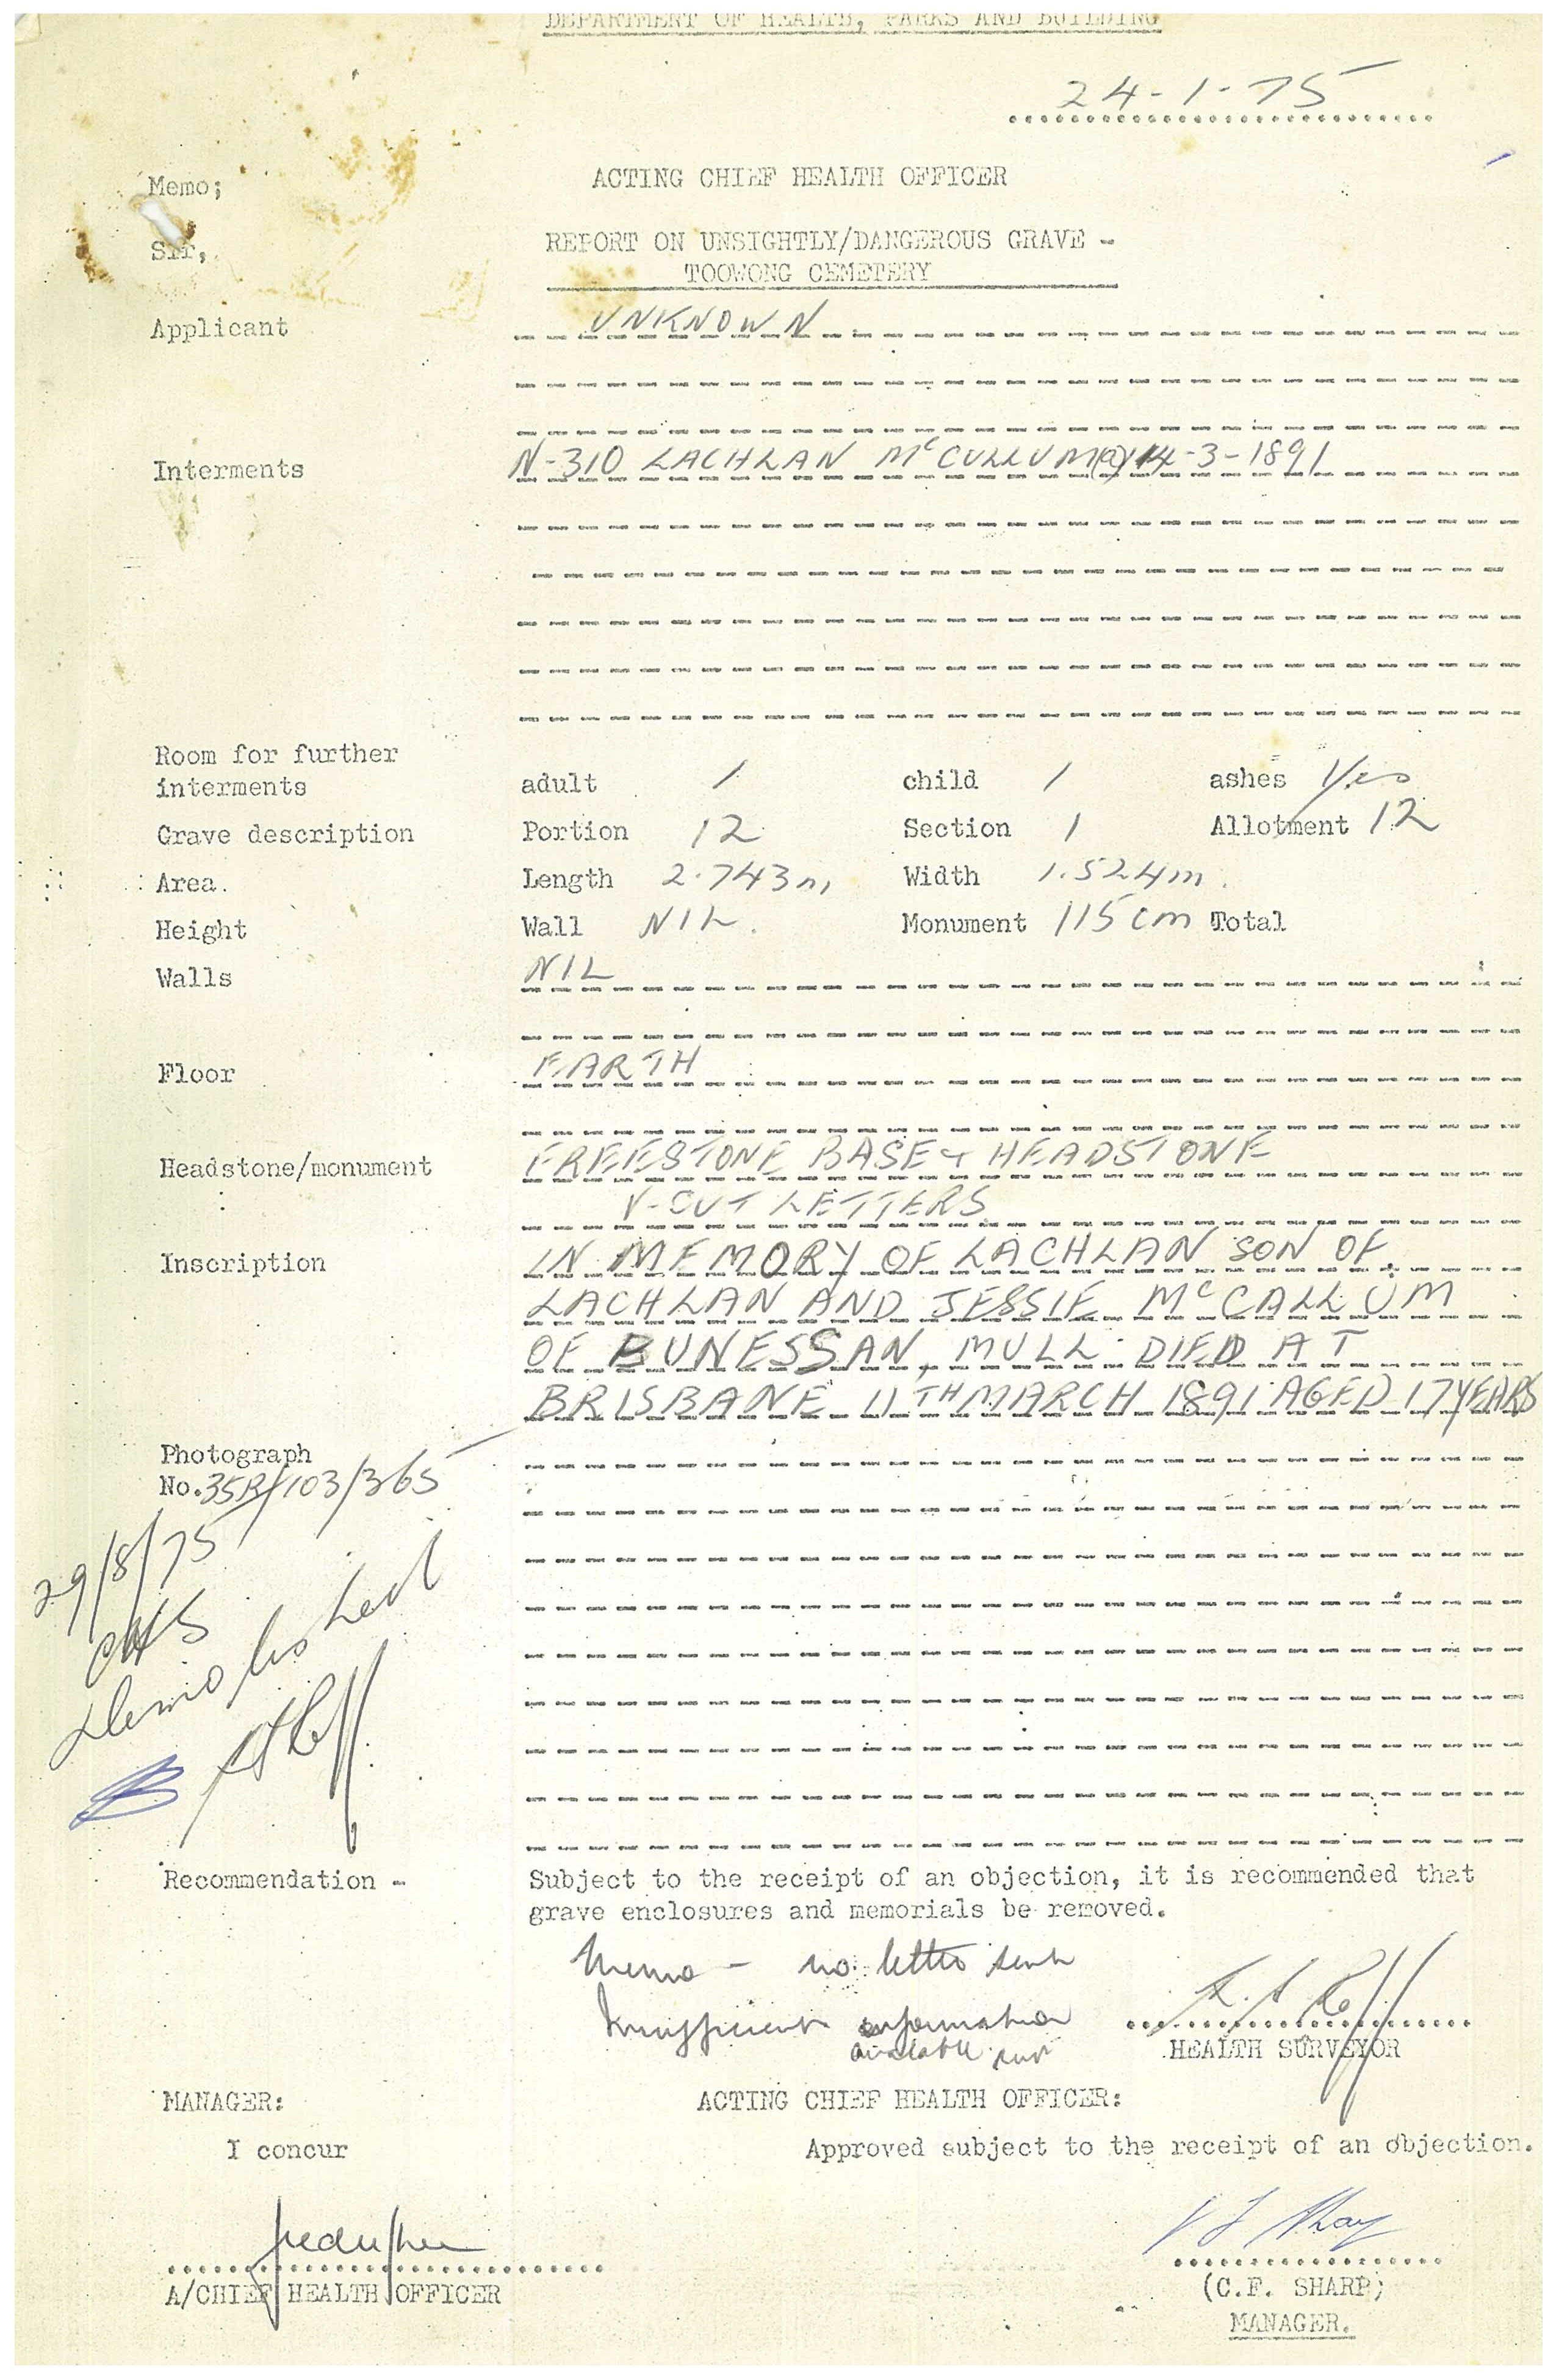 DEPARTMENT OF HEALTH, PARKS AND BUILDING
24-1-75
Memo; ACTING CHIEF HEALTH OFFICER
Sir,
REPORT ON UNSIGHTLY/DANGEROUS GRAVE -
TOOWONG CEMETERY
Applicant UNKNOWN
Interments N-310 LACHLAN McCULLUM(a) 14-3-1891
Room for further
interments adult 1 child 1 ashes Yes
Grave description Portion 12 Section 1 Allotment 12
Area. Length 2.743m Width 1.524m.
Height Wall NIL. Monument 115cm Total
Walls NIL
Floor EARTH
Headstone/monument FREESTONE BASE & HEADSTONE
V-CUT LETTERS
Inscription IN MEMORY OF LACHLAN SON OF
LACHLAN AND JESSIE McCALLUM
OF BUNESSAN, MULL. DIED AT
BRISBANE 11TH MARCH 1891 AGED 17 YEARS
Photograph
No. 35B/103/365
29/8/75
CHS
Demolished
Recommendation - Subject to the receipt of an objection, it is recommended that
grave enclosures and memorials be removed.
Memo - no letter sent
Insufficient information
available
HEALTH SURVEYOR
MANAGER: ACTING CHIEF HEALTH OFFICER:
I concur Approved subject to the receipt of an objection.
A/CHIEF HEALTH OFFICER (C.F. SHARP)
MANAGER.